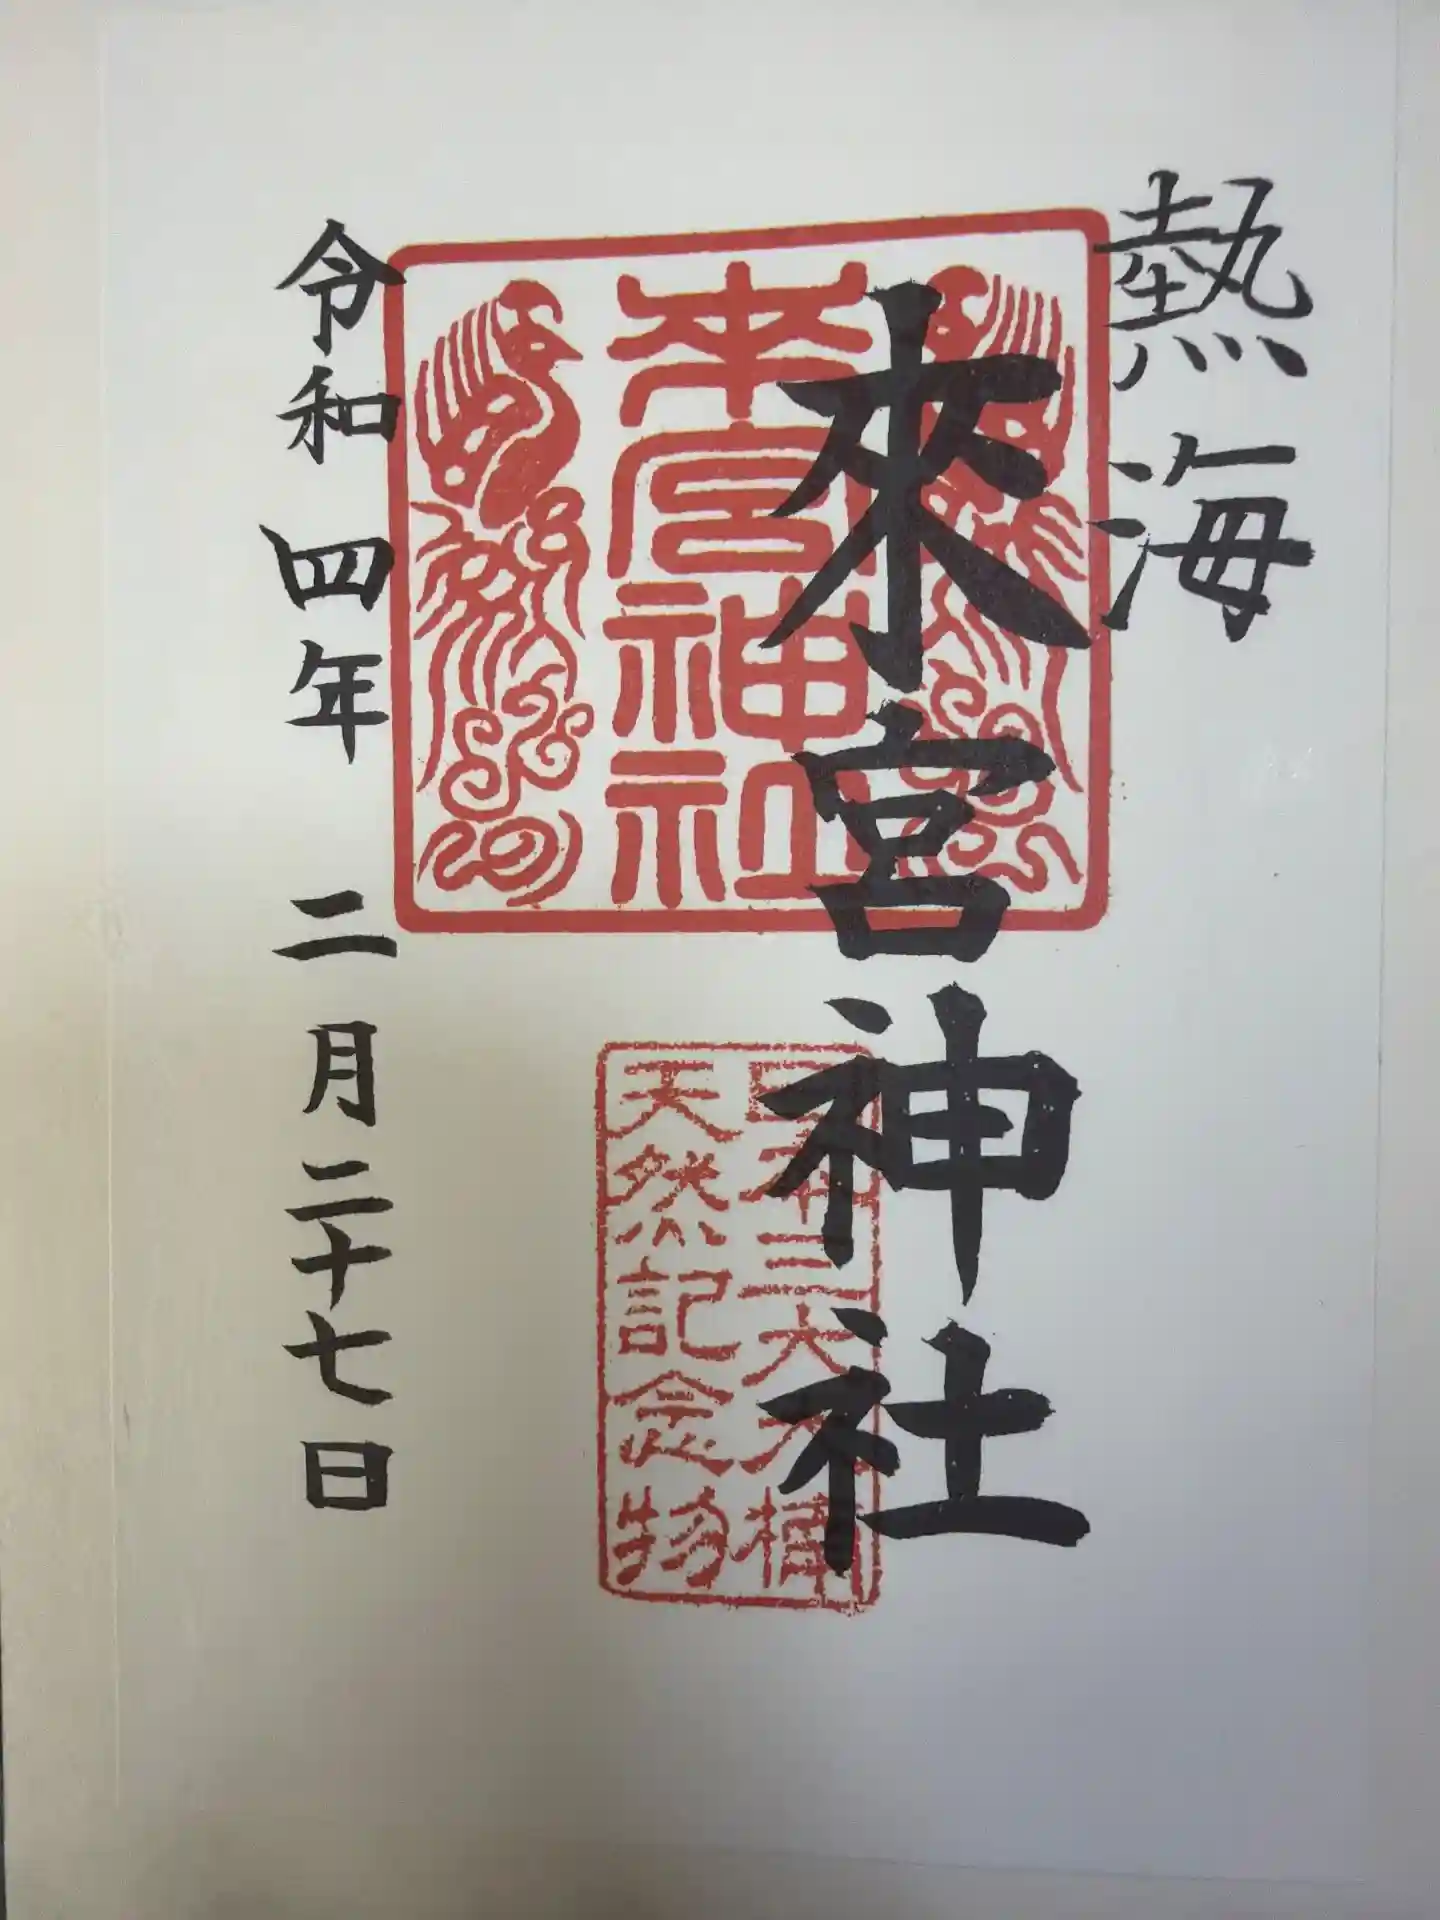 熱海
來宮神社
來宮神社
日本三大大楠
天然記念物
令和四年 二月二十七日